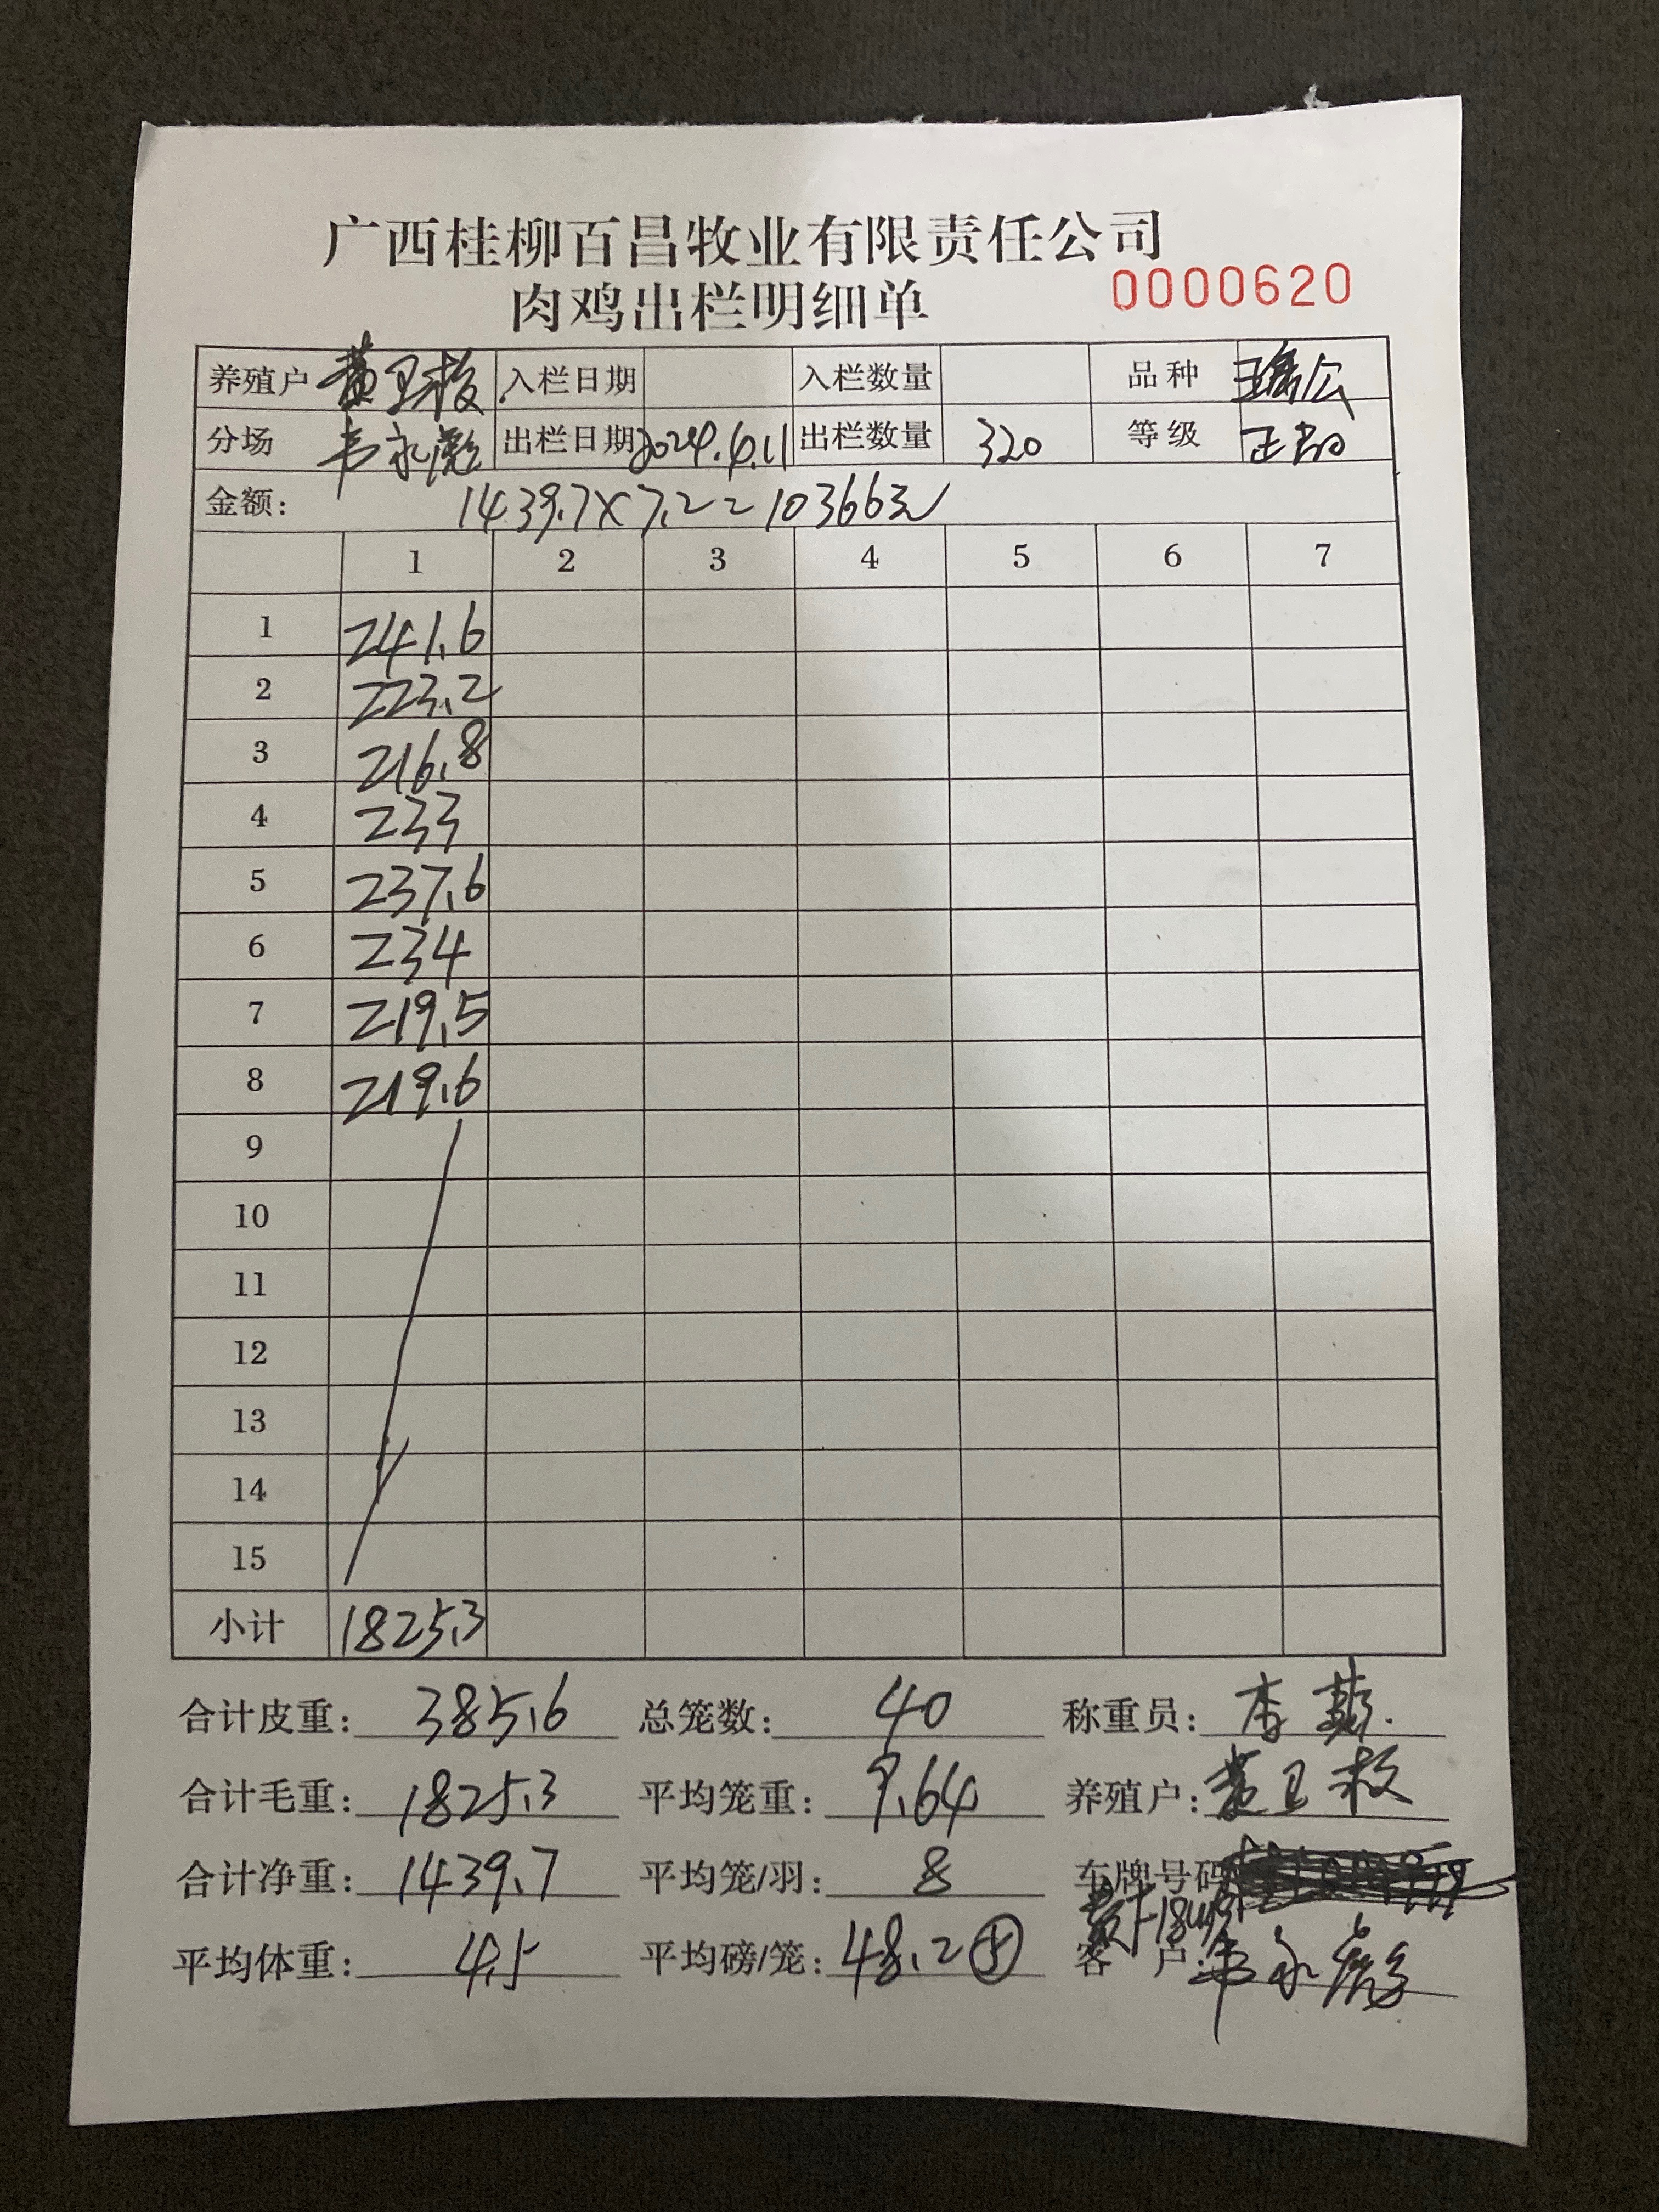 广西桂柳百昌牧业有限责任公司
肉鸡出栏明细单 0000620
养殖户 黄卫枚 入栏日期 入栏数量 品种
分场 韦永 出栏日期 2024.6.11 出栏数量 320 等级 正
金额: 1439.7×7.2=10366元
1 2 3 4 5 6 7
1 241.6
2 223.2
3 216.8
4 233
5 237.6
6 234
7 219.5
8 219.6
9
10
11
12
13
14
15
小计 1825.3
合计皮重: 385.6 总笼数: 40 称重员: 李
合计毛重: 1825.3 平均笼重: 9.64 养殖户: 黄卫枚
合计净重: 1439.7 平均笼/羽: 8 车牌号码
平均体重: 4.5 平均磅/笼: 48.2 5 客户: 韦永